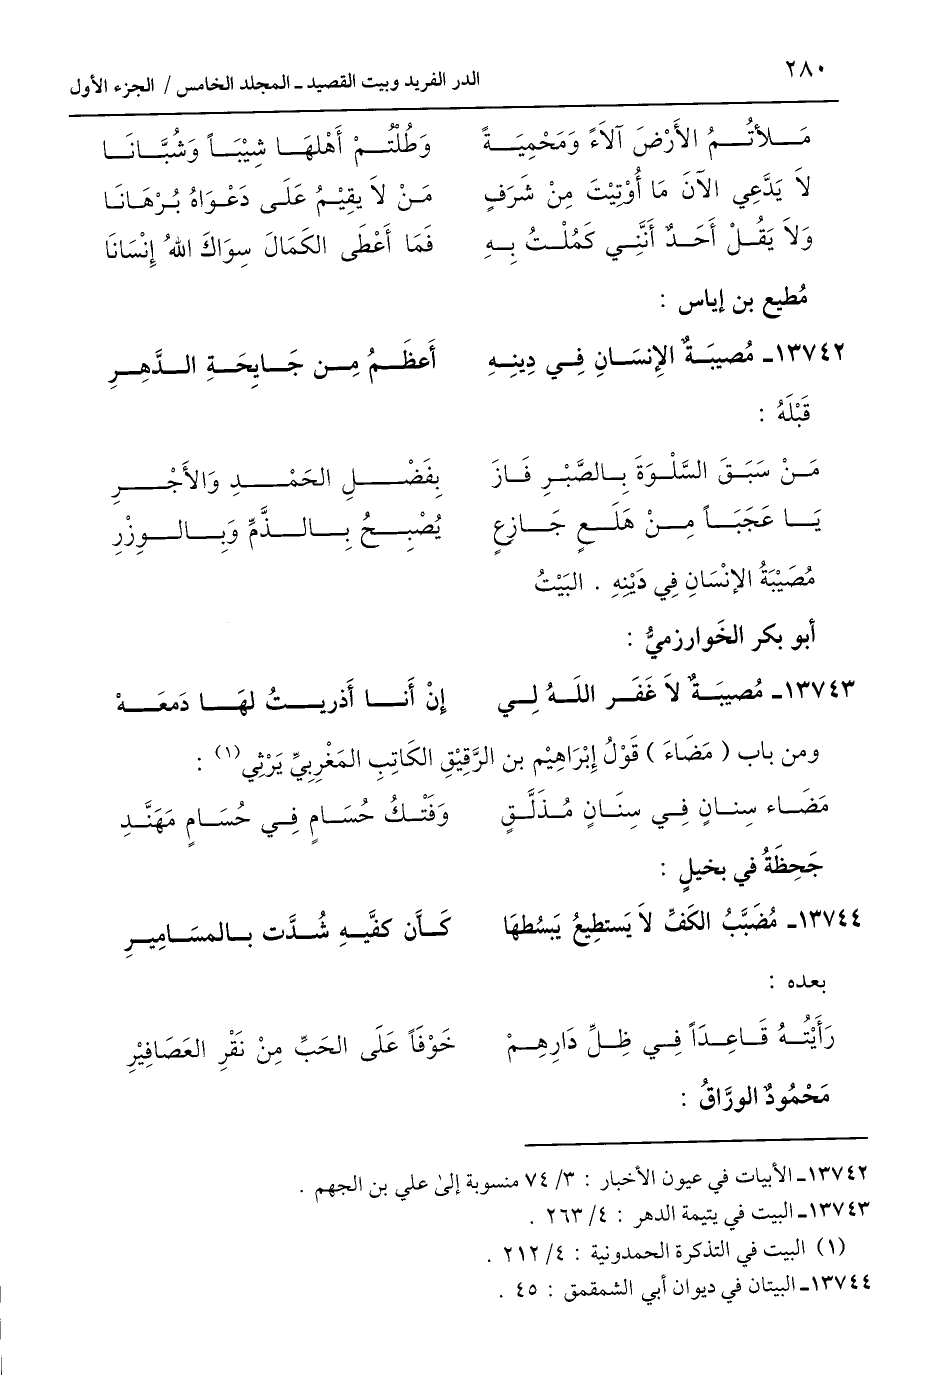 ٢٨٠
الدر الفريد وبيت القصيد ـ المجلد الخامس / الجزء الأول
مَــلأتُــمُ الأَرْضَ آلَاءً وَمَحْمِيَــةً وَطُلْتُــمْ أَهْلَهَــا شِيْبَــاً وَشُبَّــانَــا
لاَ يَدَّعِي الآنَ مَا أُوْتِيْتَ مِنْ شَرَفٍ مَنْ لاَ يِقِيْمُ عَلَى دَعْوَاهُ بُرْهَانَا
وَلاَ يَقُلْ أَحَدٌ أَنَّنِي كَمُلْتُ بِهِ فَمَا أَعْطَى الكَمَالَ سِوَاكَ اللهُ إِنْسَانَا
مُطيع بن إياس :
١٣٧٤٢ـ مُصيبَةُ الإنسَانِ فِي دِينِهِ أَعظَمُ مِن جَايِحَةِ الدَّهرِ
قَبْلَهُ :
مَنْ سَبَقَ السَّلْوَةَ بِالصَّبْرِ فَازَ بِفَضْلِ الحَمْدِ وَالأَجْرِ
يَا عَجَبَاً مِنْ هَلَعٍ جَازعٍ يُصْبحُ بِالذَّمِّ وَبِالوِزْرِ
مُصَيْبَةُ الإنْسَانِ فِي دَيْنِهِ . البَيْتُ
أبو بكر الخَوارزميُّ :
١٣٧٤٣ـ مُصيبَةٌ لاَ غَفَر اللَهُ لِي إنْ أَنا أَذريتُ لهَا دَمعَهْ
ومن باب ( مَضَاءَ ) قَوْلُ إِبْرَاهِيْم بن الرَّقِيْقِ الكَاتِبِ المَغْرِبِيِّ يَرْثِي(١) :
مَضَاء سِنانٍ فِي سِنَانٍ مُذَلَّقٍ وَفَتْكُ حُسَامٍ فِي حُسَامٍ مَهَنَّدِ
جَحِظَةُ في بخيلٍ :
١٣٧٤٤ـ مُضَبَّبُ الكَفِّ لاَ يَستطِيعُ يَبسُطهَا كَأَن كفَّيهِ شُدَّت بالمسَاميرِ
بعده :
رَأَيْتُهُ قَاعِدَاً فِي ظِلِّ دَارِهِمْ خَوْفَاً عَلَى الحَبِّ مِنْ نَقْرِ العَصَافِيْرِ
مَحْمُودٌ الورَّاقُ :
١٣٧٤٢ـ الأبيات في عيون الأخبار : ٣/ ٧٤ منسوبة إلى علي بن الجهم .
١٣٧٤٣ـ البيت في يتيمة الدهر : ٤/ ٢٦٣ .
(١) البيت في التذكرة الحمدونية : ٤/ ٢١٢ .
١٣٧٤٤ـ البيتان في ديوان أبي الشمقمق : ٤٥ .